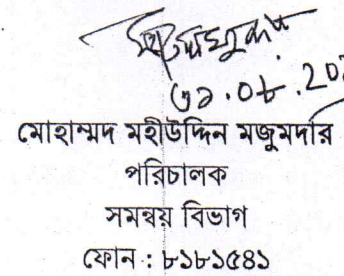 মোহাম্মদ মহীউদ্দিন মজুমদার
পরিচালক
সমন্বয় বিভাগ
ফোন : ৮১৮১৫৪১